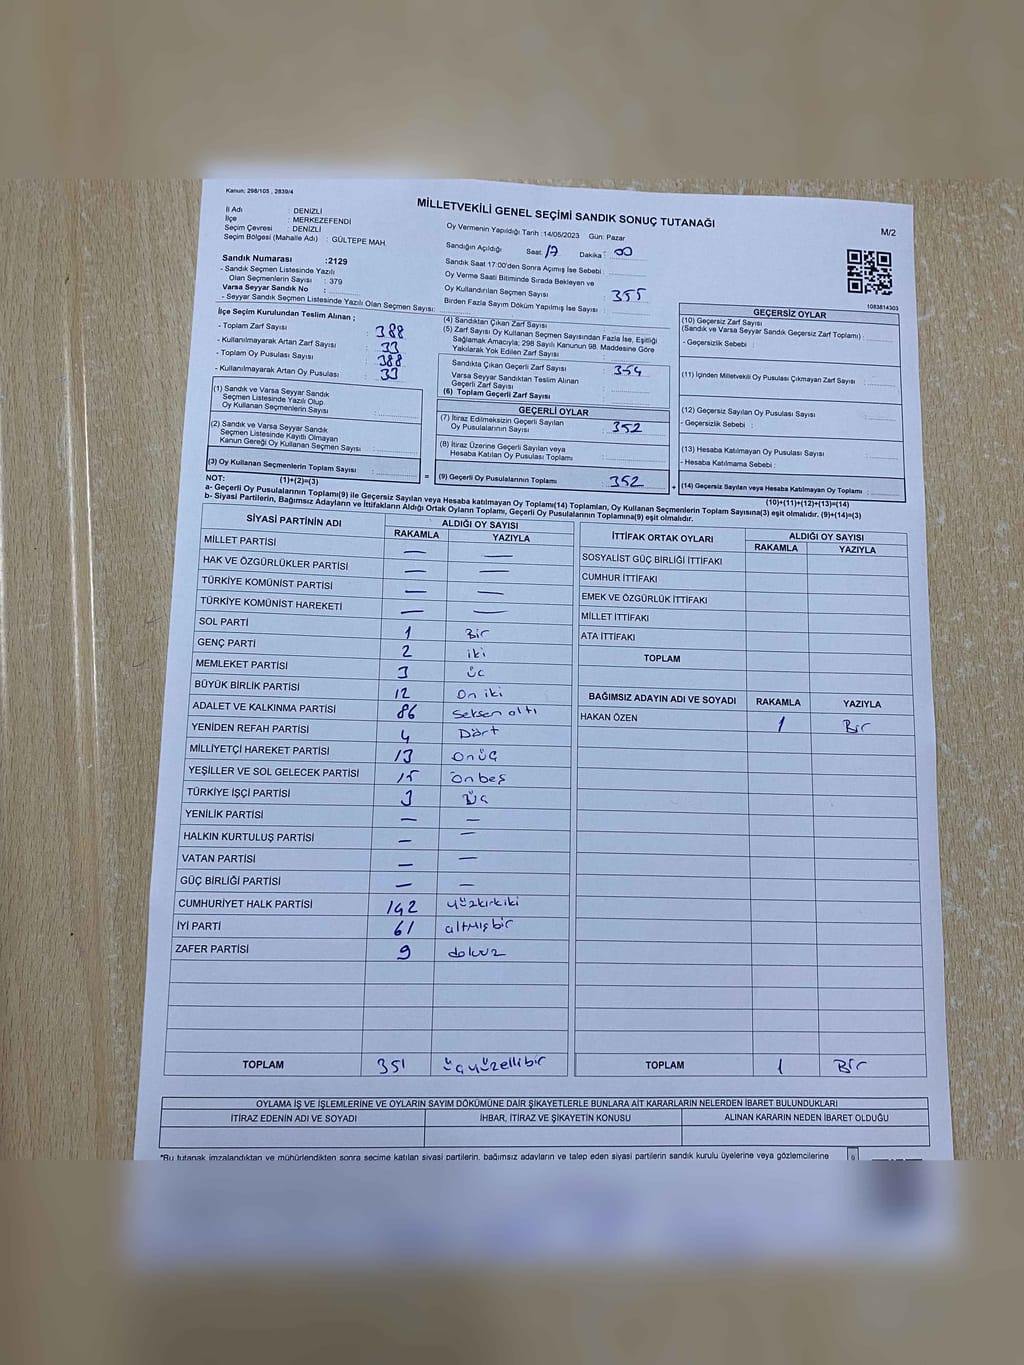 Kanun; 298/105 , 2839/4
MİLLETVEKİLİ GENEL SEÇİMİ SANDIK SONUÇ TUTANAĞI
M/2
İl Adı : DENİZLİ
İlçe : MERKEZEFENDİ
Seçim Çevresi : DENİZLİ
Seçim Bölgesi (Mahalle Adı) : GÜLTEPE MAH.
Sandık Numarası :2129
- Sandık Seçmen Listesinde Yazılı
Olan Seçmenlerin Sayısı : 379
Varsa Seyyar Sandık No :
- Seyyar Sandık Seçmen Listesinde Yazılı Olan Seçmen Sayısı:
Oy Vermenin Yapıldığı Tarih :14/05/2023 Gün: Pazar
Sandığın Açıldığı Saat: 17 Dakika : 00
Sandık Saat 17:00'den Sonra Açımış İse Sebebi :
Oy Verme Saati Bitiminde Sırada Bekleyen ve
Oy Kullandırılan Seçmen Sayısı : 355
Birden Fazla Sayım Döküm Yapılmış İse Sayısı :
1083814303
İlçe Seçim Kurulundan Teslim Alınan ;
- Toplam Zarf Sayısı : 388
- Kullanılmayarak Artan Zarf Sayısı : 33
- Toplam Oy Pusulası Sayısı : 388
- Kullanılmayarak Artan Oy Pusulası : 33
(1) Sandık ve Varsa Seyyar Sandık
Seçmen Listesinde Yazılı Olup
Oy Kullanan Seçmenlerin Sayısı :
(2) Sandık ve Varsa Seyyar Sandık
Seçmen Listesinde Kayıtlı Olmayan
Kanun Gereği Oy Kullanan Seçmen Sayısı :
(3) Oy Kullanan Seçmenlerin Toplam Sayısı :
(1)+(2)=(3)
(4) Sandıktan Çıkan Zarf Sayısı
(5) Zarf Sayısı Oy Kullanan Seçmen Sayısından Fazla İse, Eşitliği
Sağlamak Amacıyla; 298 Sayılı Kanunun 98. Maddesine Göre
Yakılarak Yok Edilen Zarf Sayısı :
Sandıkta Çıkan Geçerli Zarf Sayısı : 354
Varsa Seyyar Sandıktan Teslim Alınan
Geçerli Zarf Sayısı :
(6) Toplam Geçerli Zarf Sayısı :
GEÇERLİ OYLAR
(7) İtiraz Edilmeksizin Geçerli Sayılan
Oy Pusulalarının Sayısı : 352
(8) İtiraz Üzerine Geçerli Sayılan veya
Hesaba Katılan Oy Pusulası Toplamı :
=
(9) Geçerli Oy Pusulalarının Toplamı : 352
+
GEÇERSİZ OYLAR
(10) Geçersiz Zarf Sayısı
(Sandık ve Varsa Seyyar Sandık Geçersiz Zarf Toplamı) :
- Geçersizlik Sebebi :
(11) İçinden Milletvekili Oy Pusulası Çıkmayan Zarf Sayısı :
(12) Geçersiz Sayılan Oy Pusulası Sayısı :
- Geçersizlik Sebebi :
(13) Hesaba Katılmayan Oy Pusulası Sayısı :
- Hesaba Katılmama Sebebi :
(14) Geçersiz Sayılan veya Hesaba Katılmayan Oy Toplamı :
(10)+(11)+(12)+(13)=(14)
NOT:
a- Geçerli Oy Pusulalarının Toplamı(9) ile Geçersiz Sayılan veya Hesaba katılmayan Oy Toplamı(14) Toplamları, Oy Kullanan Seçmenlerin Toplam Sayısına(3) eşit olmalıdır. (9)+(14)=(3)
b- Siyasi Partilerin, Bağımsız Adayların ve İttifakların Aldığı Ortak Oyların Toplamı, Geçerli Oy Pusulalarının Toplamına(9) eşit olmalıdır.
SİYASİ PARTİNİN ADI ALDIĞI OY SAYISI
RAKAMLA YAZIYLA
MİLLET PARTİSİ — —
HAK VE ÖZGÜRLÜKLER PARTİSİ — —
TÜRKİYE KOMÜNİST PARTİSİ — —
TÜRKİYE KOMÜNİST HAREKETİ — —
SOL PARTİ 1 Bir
GENÇ PARTİ 2 iki
MEMLEKET PARTİSİ 3 üc
BÜYÜK BİRLİK PARTİSİ 12 On iki
ADALET VE KALKINMA PARTİSİ 86 Seksen altı
YENİDEN REFAH PARTİSİ 4 Dört
MİLLİYETÇİ HAREKET PARTİSİ 13 Onüç
YEŞİLLER VE SOL GELECEK PARTİSİ 15 Onbeş
TÜRKİYE İŞÇİ PARTİSİ 3 Üç
YENİLİK PARTİSİ — —
HALKIN KURTULUŞ PARTİSİ — —
VATAN PARTİSİ — —
GÜÇ BİRLİĞİ PARTİSİ — —
CUMHURİYET HALK PARTİSİ 142 yüzkırkiki
İYİ PARTİ 61 altmışbir
ZAFER PARTİSİ 9 dokuz
TOPLAM 351 üçyüzellibir
İTTİFAK ORTAK OYLARI ALDIĞI OY SAYISI
RAKAMLA YAZIYLA
SOSYALİST GÜÇ BİRLİĞİ İTTİFAKI
CUMHUR İTTİFAKI
EMEK VE ÖZGÜRLÜK İTTİFAKI
MİLLET İTTİFAKI
ATA İTTİFAKI
TOPLAM
BAĞIMSIZ ADAYIN ADI VE SOYADI RAKAMLA YAZIYLA
HAKAN ÖZEN 1 Bir
TOPLAM 1 Bir
OYLAMA İŞ VE İŞLEMLERİNE VE OYLARIN SAYIM DÖKÜMÜNE DAİR ŞİKAYETLERLE BUNLARA AİT KARARLARIN NELERDEN İBARET BULUNDUKLARI
İTİRAZ EDENİN ADI VE SOYADI İHBAR, İTİRAZ VE ŞİKAYETİN KONUSU ALINAN KARARIN NEDEN İBARET OLDUĞU
*Bu tutanak imzalandıktan ve mühürlendikten sonra seçime katılan siyasi partilerin, bağımsız adayların ve talep eden siyasi partilerin sandık kurulu üyelerine veya gözlemcilerine